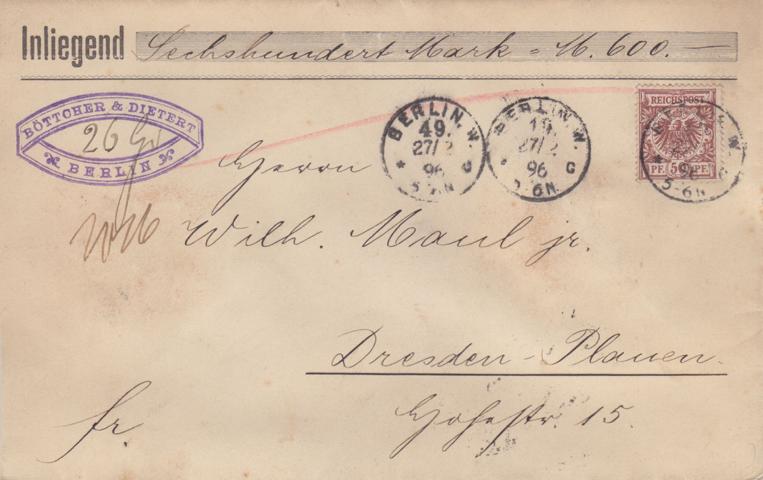 Inliegend Sechshundert Mark = M. 600.—
BÖTTCHER & DIETERT
26 Gr
BERLIN
BERLIN. W.
49.
27/2
96
5-6N.
* G
BERLIN. W.
49.
27/2
96
5-6N.
* G
REICHSPOST
PF. 50 PF.
W.
96
5-6N.
* G
Herrn
Wilh. Maul jr.
Dresden-Plauen.
Hofestr. 15.
fr